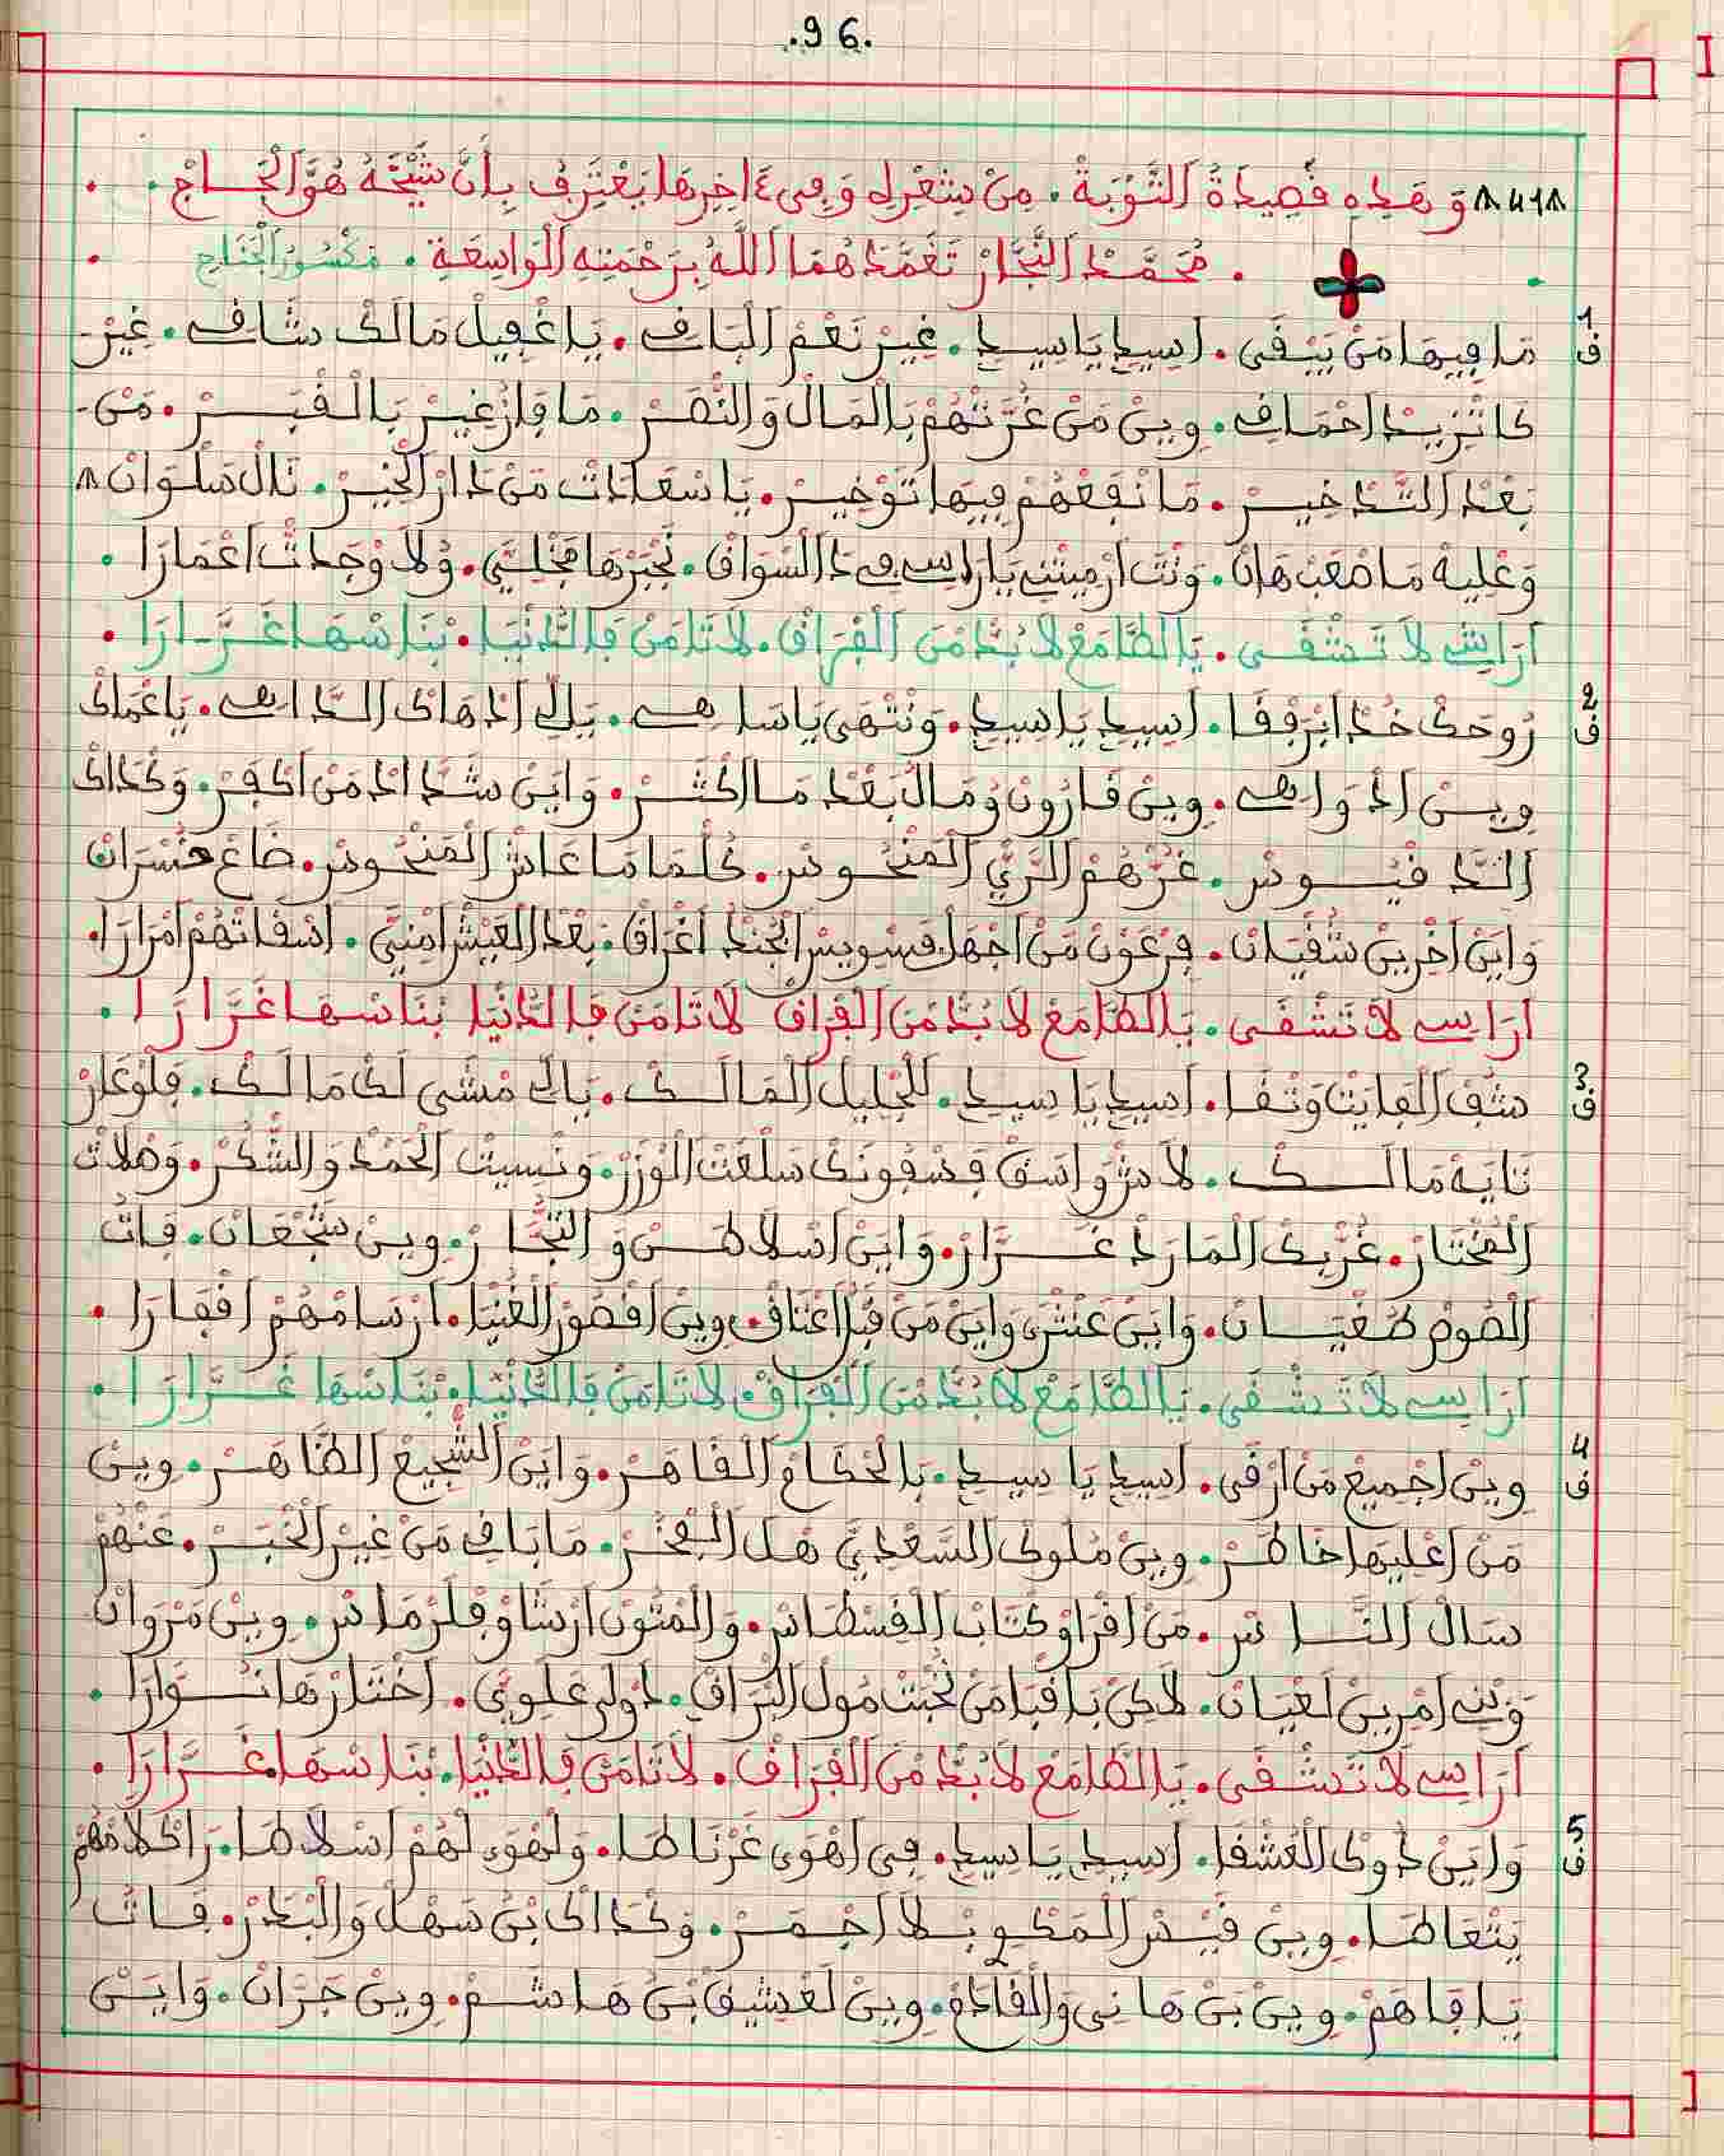 .96.
وَهَذِهِ قَصِيدَةُ التَّوْبَةْ. مِنْ شِعْرِهِ وَفِي ءَاخِرِهَا يَعْتَرِفُ بِأَنَّ شَيْخَهُ هُوَ الْحَـاجْ.
. مُحَمَّدْ النَّجَّارْ تَغَمَّدَهُمَا اللَّهُ بِرَحْمَتِهِ الْوَاسِعَةِ. مَكْسُورْ الْجْنَاحِ
1 ق مَا فِيهَا مَنْ يَبْقَى. أسِيدِي يَا سِيدِي. غِيرْ نَعْمْ الْبَاقِي. يَا غْفِيلْ مَالَكْ شَاقِي. غِيرْ
كَاتْزِيدْ احْمَاقِي. وِينْ مَنْ غَرّتْهُمْ بَالْمَالْ وَالنّصَرْ. مَا فَازْ غِيرْ بَالْقْبَـرْ. مَنْ
بَعْدْ التَّدْخِيـرْ. مَا نْفَعْهُمْ فِيهَا تَوْخِيرْ. يَا سْعَدَاتْ مَنْ دَارْ الْخِيرْ. نَالْ سَلْوَانْ
وَعْلِيهْ مَا صْعَبْ هَانْ. وَنْتَ ارْمِيتْنِي يَا رَاسِي فِي دَا السّوَاقْ. نَجْبَرْهَا مَخْلِيَّ. وُلَا وْجَدْتْ اعْمَارَا.
أرَاسِي لَا تَشْقَى. يَا الطَّامَعْ لَا بُدّْ مْنَ الْفْرَاقْ. لَا تَامَنْ فَالدَّنْيَا. بْنَاسْهَا غَـرَّارَا.
2 ق رُوحَكْ خُدْ ابْرَفْقَا. أسِيدِي يَا سِيدِي. وَنْتْهَى يَا سَاهِي. يَلِّي ادْهَاكْ الدَّاهِي. يَا عْمَاكْ
وِيـنْ ادْوَاهِي. وِينْ قَارُونْ وُمَالُ بَعْدْ مَا اكْثَـرْ. وَايَنْ شَدَّادْ مَنْ اكْفَرْ. وَكْدَاكْ
الدَّقْيُـوسْ. غَرّْهُمْ الزَّيْ الْمَنْحُـوسْ. كُلّمَا مَا عَاشْ الْمَنْحُوسْ. ضَاعْ خَسْرَانْ
وَايَنْ اخْرِينْ شَقْيَانْ. فِرْعَوْنْ مَنْ اجْهَلْ فَسْوِيسْ الْجُنْدْ اغْرَاقْ. بَعْدْ الْعِيشْ امْنِيَّ. اسْقَاتْهُمْ امْرَارَا.
أرَاسِي لَا تَشْقَى. يَا الطَّامَعْ لَا بُدّْ مْنَ الْفْرَاقْ لَا تَامَنْ فَالدَّنْيَا بْنَاسْهَا غَـرَّارَا.
3 ق شَقّ الْفَايْتْ وَتْقَا. أسِيدِي يَا سِيدِي. لَلْجْلِيلْ الْمَالَـكْ. بَالَكْ مْشَى لَكْ مَالَـكْ. فَلْوْعَارْ
تَايَهْ مَالَـكْ. لَاشْ وَاسَقْ فَسْفُونَكْ سَلْعَتْ الْوْزَرْ. وَنْسِيتْ الْحَمْدْ وَالشُّكَرْ. وَصْلَاتْ
الْمُخْتَارْ. غَرّكْ الْمَارَدْ غَـرَّارْ. وَايَنْ اسْلَاطَـنْ وَالتّجَّـارْ. وِينْ شَجْعَانْ. فَاتْ
الْقُومْ طَغْيَـانْ. وَايَنْ عَنْتَرْ وَايَنْ مَنْ قَبْلْ اعْنَاقْ. وِينْ اقْصُورْ الْغَنْيَا. ارْسَامْهُمْ اقْفَارَا.
أرَاسِي لَا تَشْقَى. يَا الطَّامَعْ لَا بُدّْ مْنَ الْفْرَاقْ. لَا تَامَنْ فَالدَّنْيَا. بْنَاسْهَا غَـرَّارَا.
4 ق وِينْ اجْمِيعْ مَنْ ارْقَى. أسِيدِي يَا سِيدِي. بَالْحْكَامْ الْقَاهَـرْ. وَايَنْ الشّجِيعْ الظَّاهَـرْ. وِينْ
مَنْ اعْلِيهَا خَاطَـرْ. وِينْ مُلُوكْ السَّعْدِيَّ هَلْ الْفْخَـرْ. مَا بَاقِي مَنْ غِيرْ الْخْبَـرْ. عَنْهُمْ
سَالْ النَّـاسْ. مَنْ اقْرَاوْ كْتَابْ الْقُسْطَاسْ. وَالْمْتُونْ ارْشَاوْ فَلَرْمَاسْ. وِينْ مَرْوَانْ
وَبْنِي امْرِينْ لَعْيَانْ. لَاكِنْ بَاقْيَا مَنْ نُخْبَتْ مُولْ الْبْرَاقْ. دَوْلَ عَلَوِيَّ. اخْتَارْهَا نُـوَّارَا.
أرَاسِي لَا تَشْقَى. يَا الطَّامَعْ لَا بُدّْ مْنَ الْفْرَاقْ. لَا تَامَنْ فَالدَّنْيَا. بْنَاسْهَا غَـرَّارَا.
5 ق وَايَنْ دُوكْ الْعُشْقَا. أسِيدِي يَا سِيدِي. فِي اهْوَى غَرْنَاطَـا. وَلْهْوَى لْهُمْ اسْلَاطَـا. رَاكْلَامْهُمْ
يَتْعَاطَـا. وِينْ قَيْسْ الْمَكْوِي بْلَا اجْمَـرْ. وَكْدَاكْ بْنْ سَهْلْ وَالْبْدَرْ. فَاتْ
يَلْقَاهُمْ. وِينْ بَنْ هَانِي وَالْفَاهَمْ. وِينْ لَعْشِيقْ بَنْ هَاشَـمْ. وِينْ جَرَّانْ. وَايَـنْ